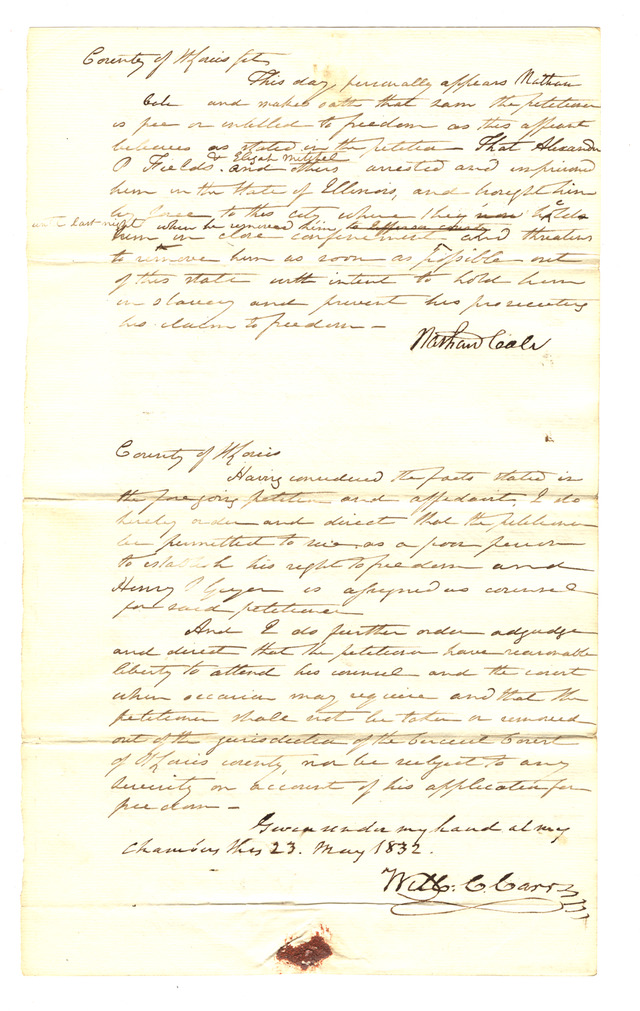 County of St Louis sct
This day personally appears Nathan
Cole and makes oath that Sam the petitioner
is free or intitled to freedom as this affiant
believes as stated in the petition That Alexander
& Elijah Mitchel
P Fields and others arrested and imprisoned
him in the State of Illinois, and brought him
by force to this city where they now hold
until last night when he removed him to Jefferson county
him in close confinement and threatens
to remove him as soon as possible out
of this state with intent to hold him
in slavery and prevent his prosecuting
his claim to freedom —
Nathan Cole
County of St Louis
Having considered the facts stated in
the foregoing petition and affidavit, I do
hereby order and direct that the petitioner
be permitted to sue as a poor person
to establish his right to freedom and
Henry S Geyer is assigned as counsel
for said petitioner
And I do further order adjudge
and direct that the petitioner have reasonable
liberty to attend his counsel and the court
when occasion may require and that the
petitioner shall not be taken or removed
out of the jurisdiction of the Circuit Court
of St Louis county, nor be subject to any
severity on account of his application for
freedom —
Given under my hand at my
chambers this 23. May 1832.
Will. C. Carr